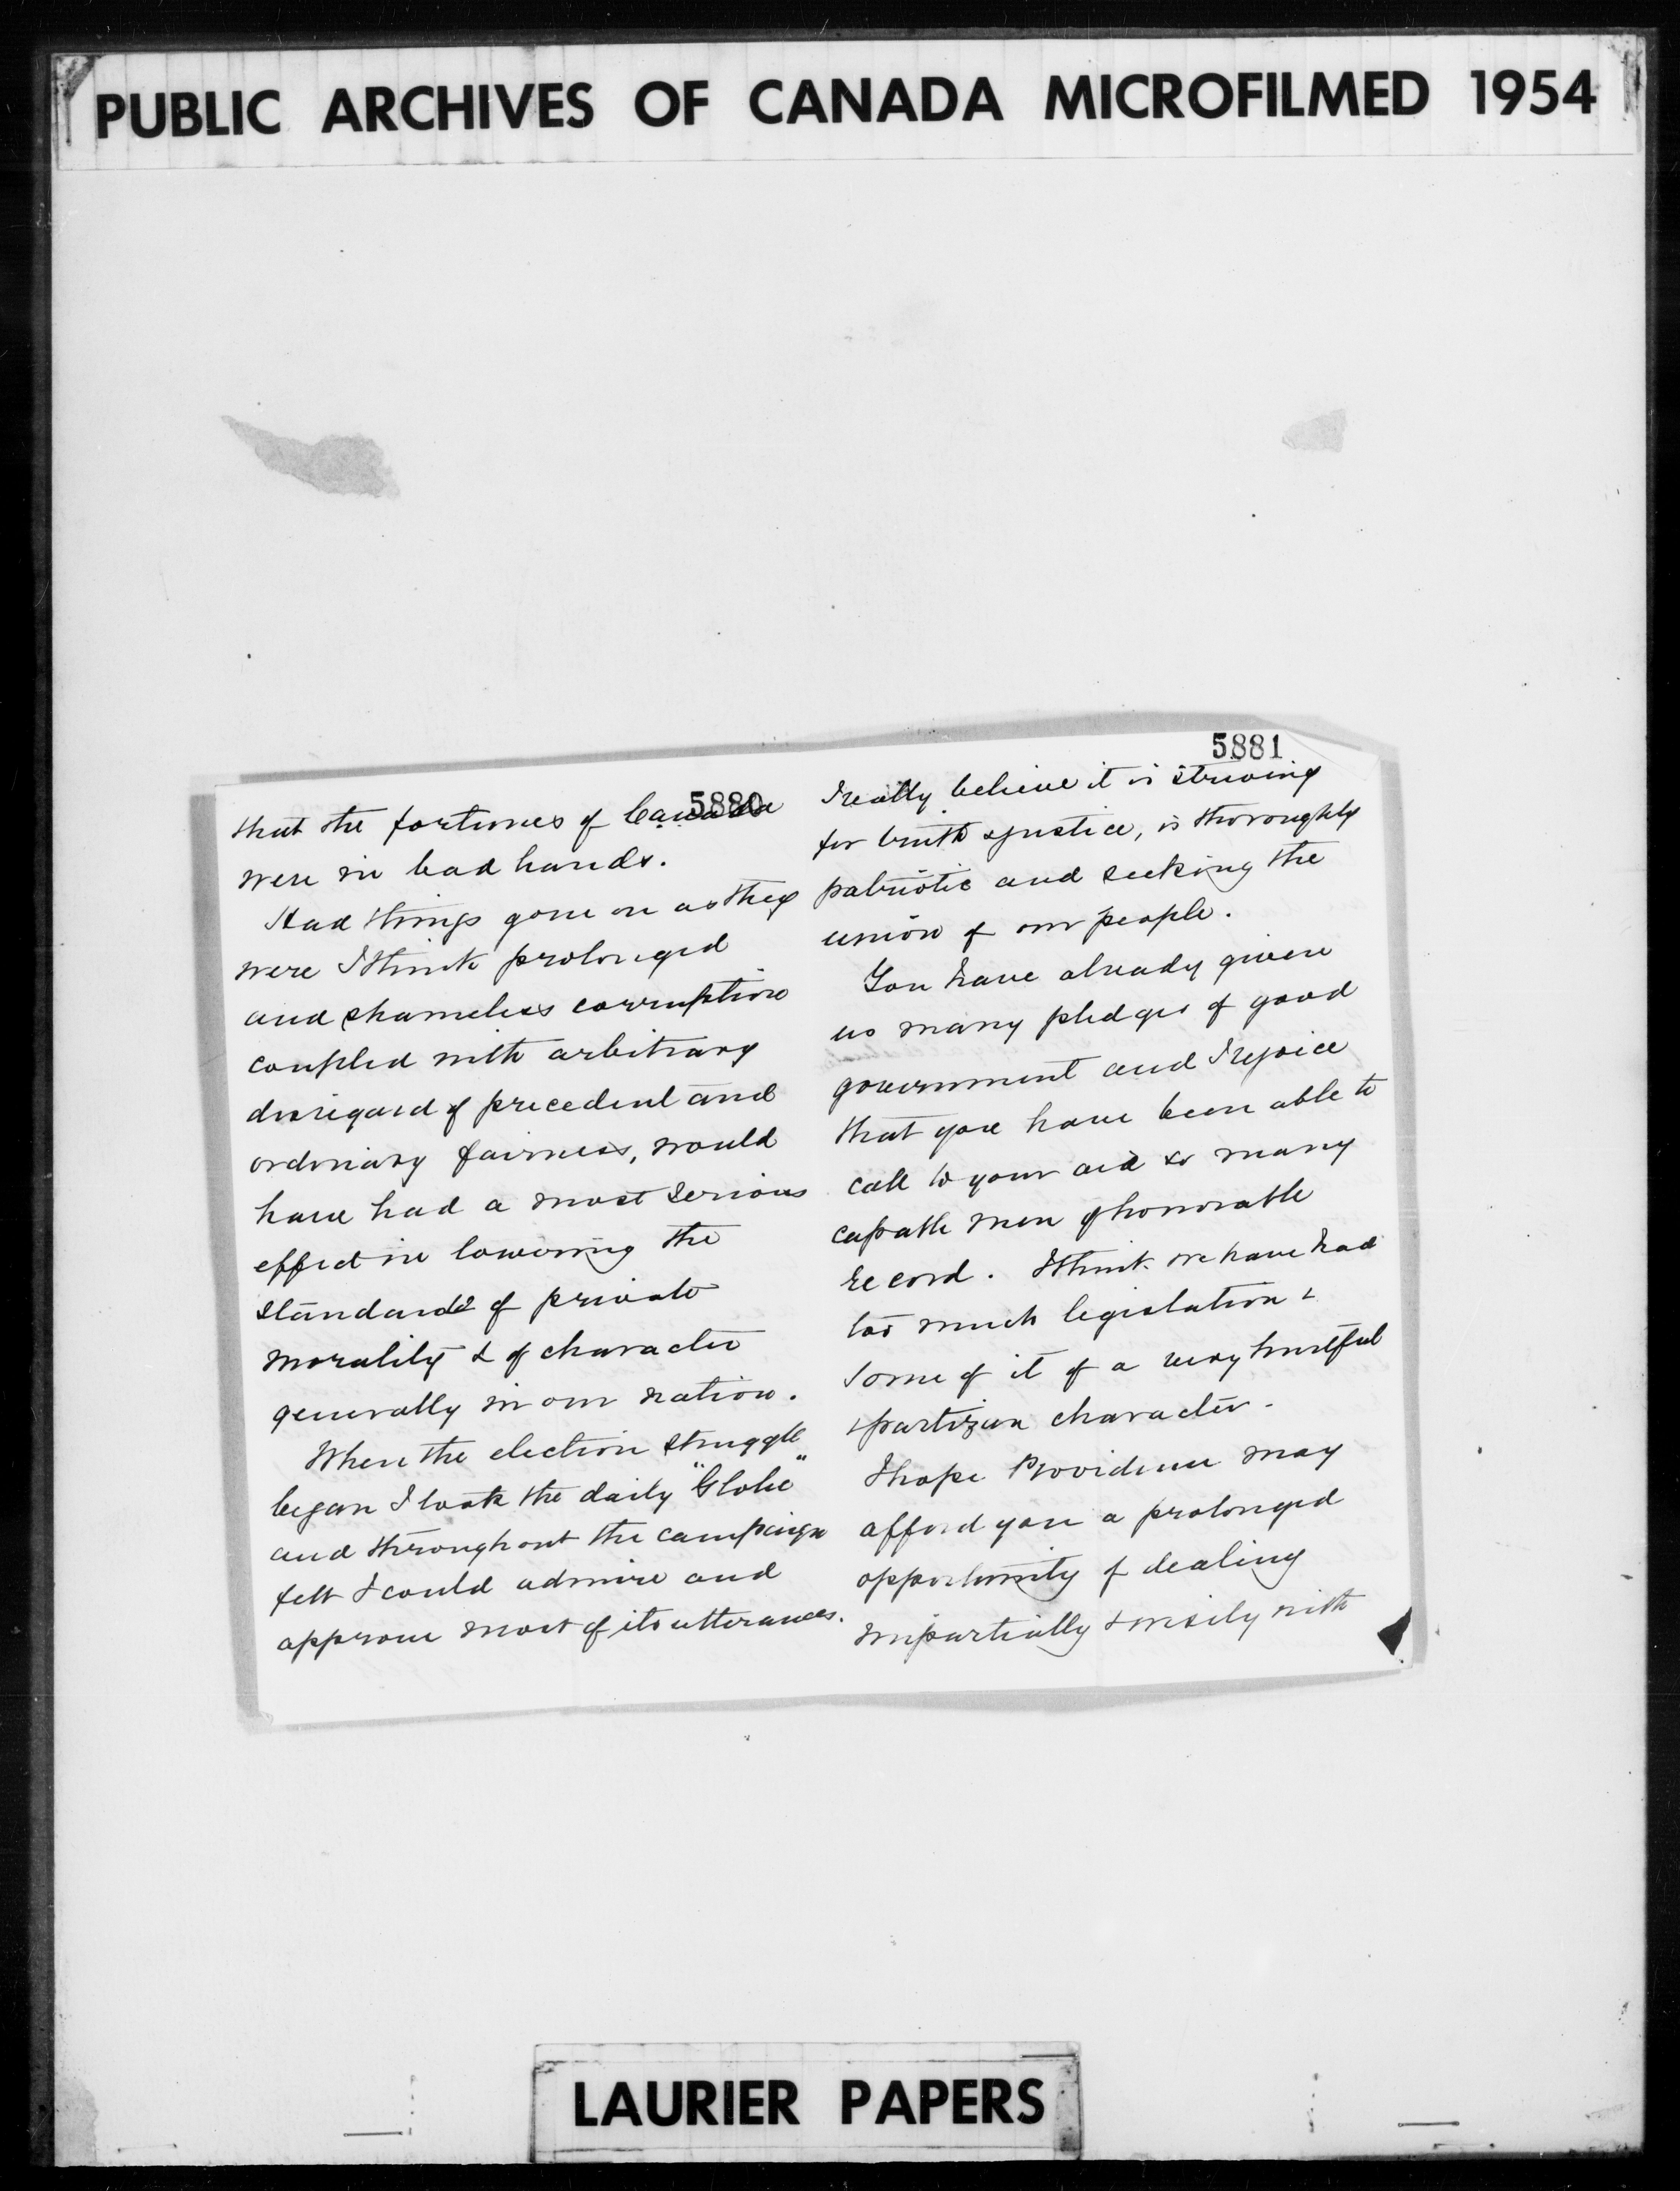 PUBLIC ARCHIVES OF CANADA MICROFILMED 1954
5880
that the fortunes of Canada
were in bad hands.
Had things gone on as they
were I think prolonged
and shameless corruption
coupled with arbitrary
disregard of precedent and
ordinary fairness, would
have had a most serious
effect in lowering the
standards of private
morality & of character
generally in our nation.
When the election struggle
began I took the daily "Globe"
and throughout the campaign
felt I could admire and
approve most of its utterances.
5881
I really believe it is striving
for truth & justice, is thoroughly
patriotic and seeking the
union of our people.
You have already given
us many pledges of good
government and I rejoice
that you have been able to
call to your aid so many
capable men of honorable
record. I think we have had
too much legislation &
some of it of a very hurtful
& partizan character.
I hope Providence may
afford you a prolonged
opportunity of dealing
impartially & wisely with
LAURIER PAPERS